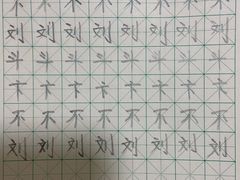 不不不不不不不不
刘刘刘刘刘刘刘刘
斗斗斗斗斗斗斗斗
卞卞卞卞卞卞卞卞
不不不不不不不不
刘刘刘刘刘刘刘刘